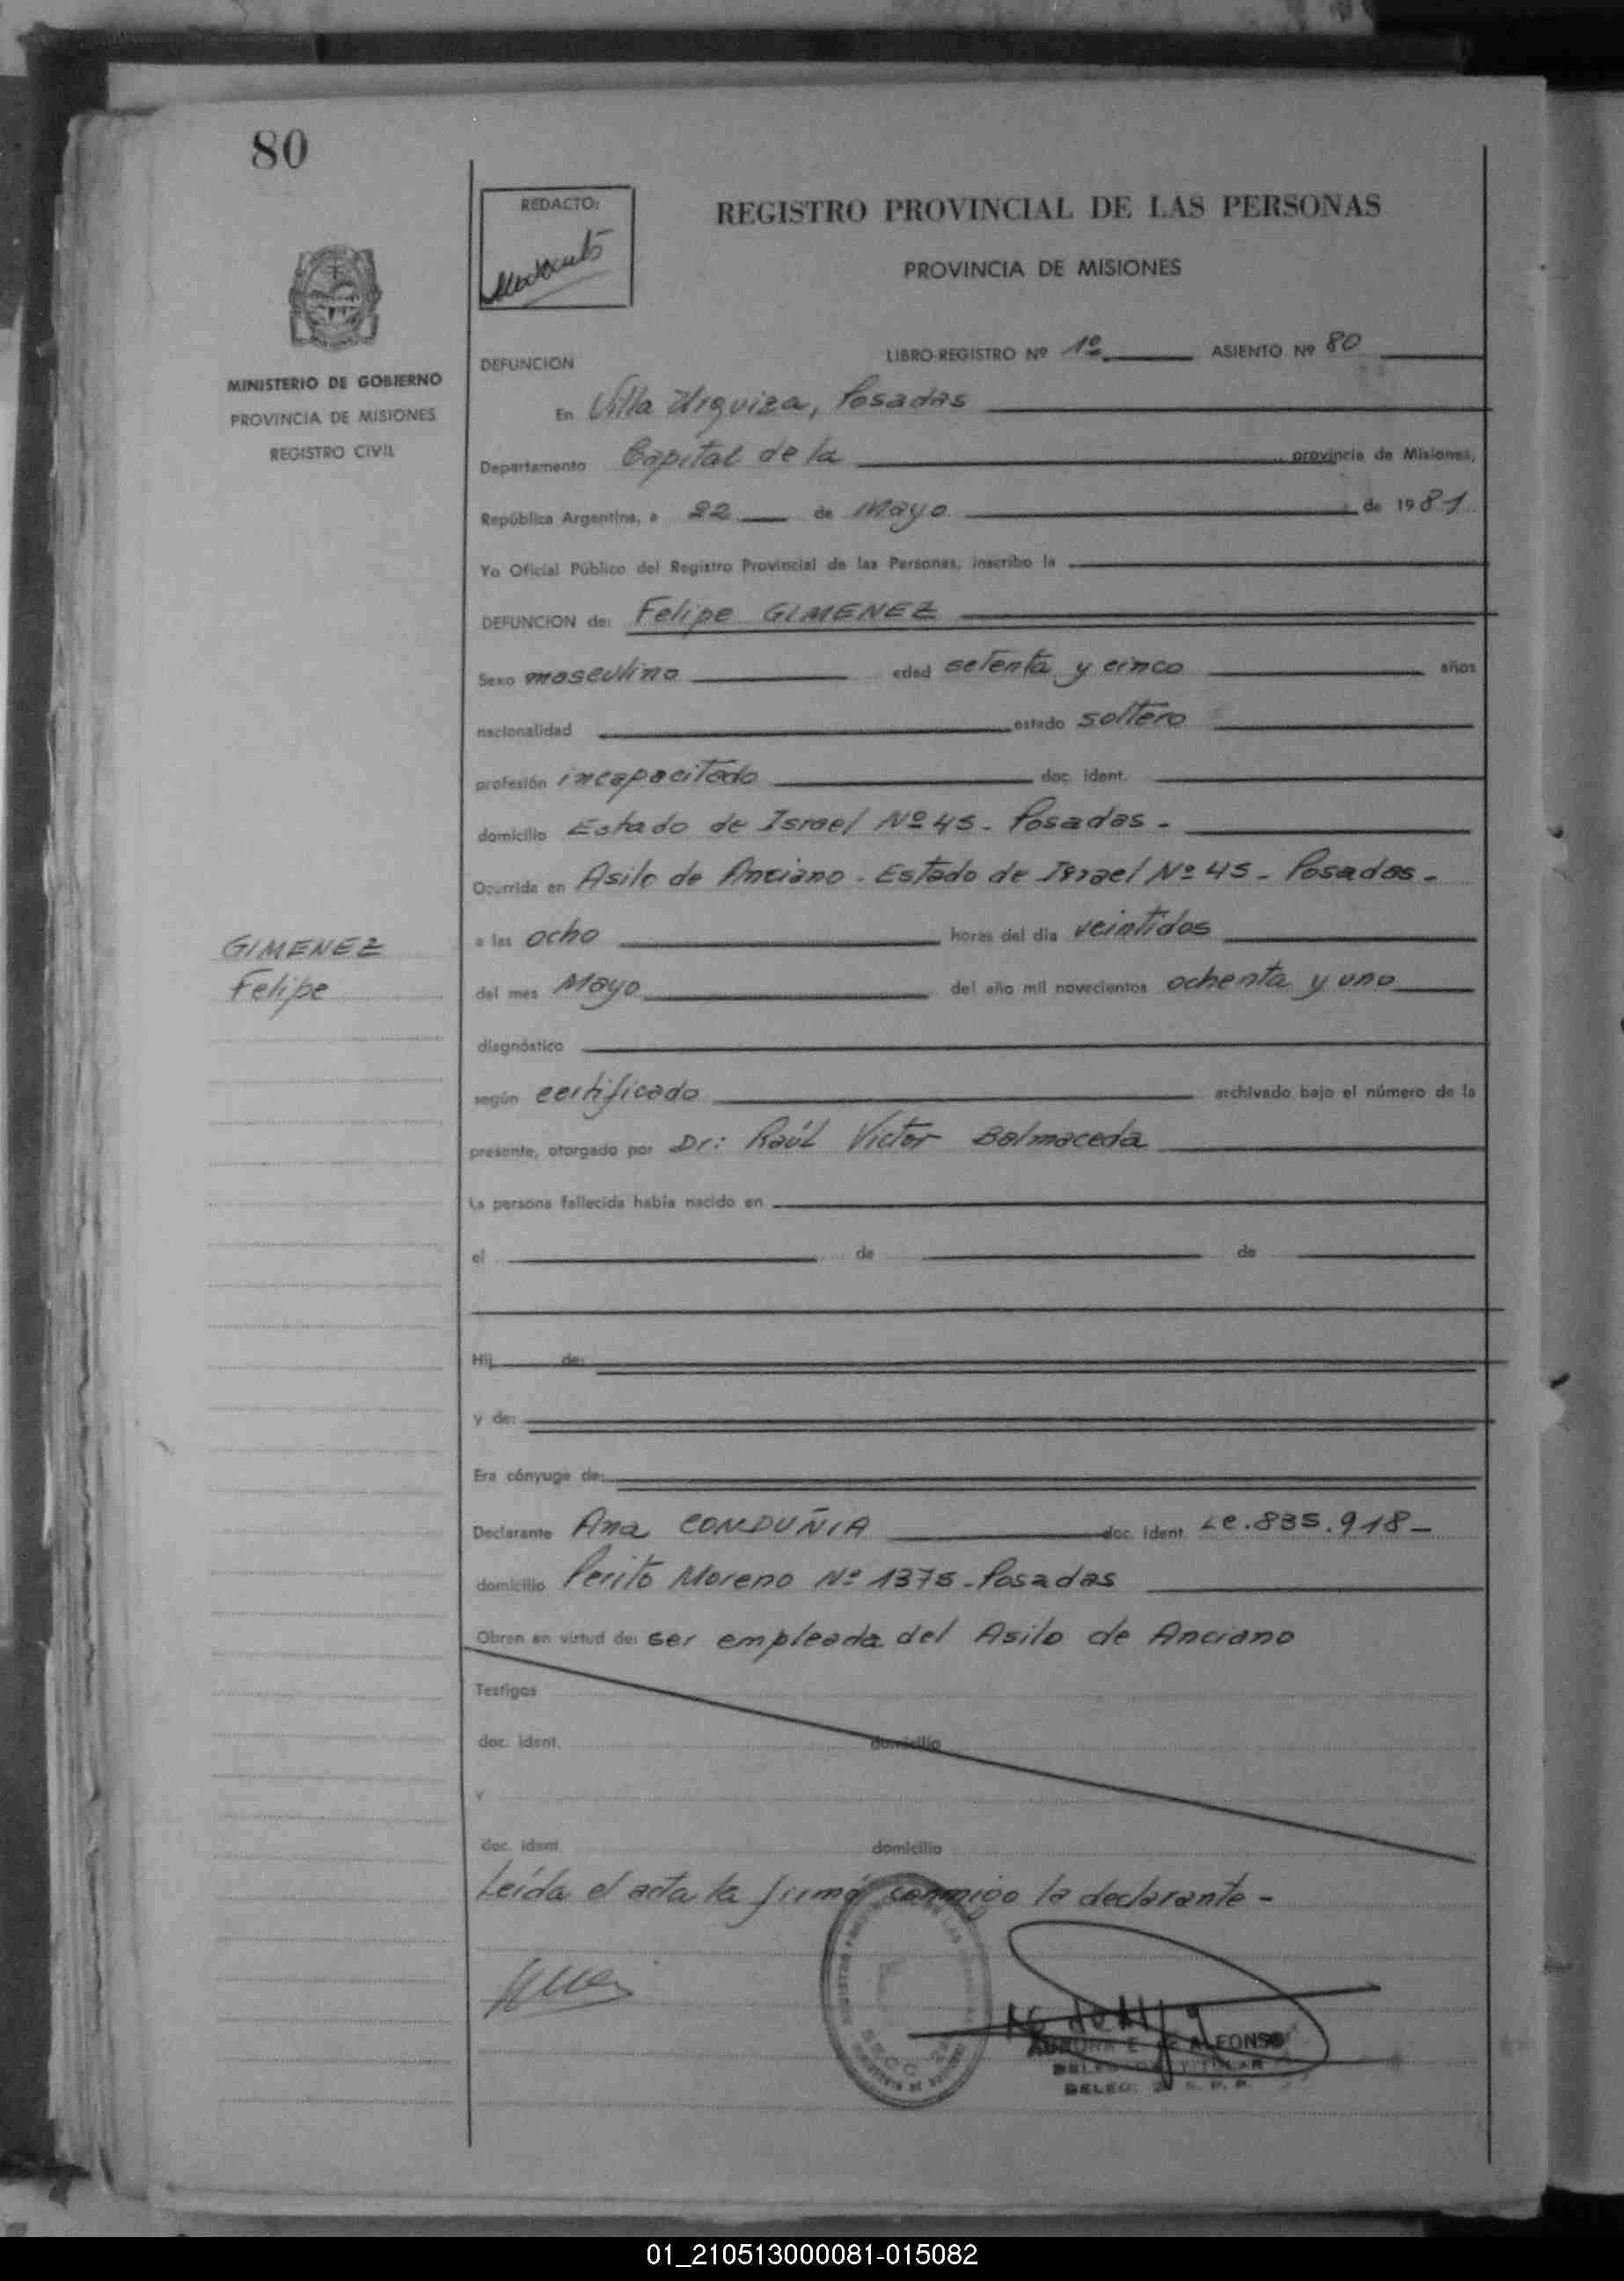 80
REDACTO:
REGISTRO PROVINCIAL DE LAS PERSONAS
PROVINCIA DE MISIONES
MINISTERIO DE GOBIERNO
PROVINCIA DE MISIONES
REGISTRO CIVIL
DEFUNCION
LIBRO-REGISTRO Nº 1º ASIENTO Nº 80
En Villa Urquiza, Posadas
Departamento Capital de la provincia de Misiones,
República Argentina, a 22 de Mayo de 1981
Yo Oficial Público del Registro Provincial de las Personas, inscribo la
DEFUNCION de: Felipe GIMENEZ
Sexo masculino edad setenta y cinco años
nacionalidad estado soltero
profesión incapacitado doc. ident.
domicilio Estado de Israel Nº 45 - Posadas -
Ocurrida en Asilo de Anciano - Estado de Israel Nº 45 - Posadas -
a las ocho horas del dia veintidos
del mes Mayo del año mil novecientos ochenta y uno
GIMENEZ
Felipe
diagnóstico
según certificado archivado bajo el número de la
presente, otorgado por Dr: Raúl Victor Balmaceda
La persona fallecida había nacido en
el de de
Hij de:
y de:
Era cónyuge de:
Declarante Ana CONDUÑIA doc. ident. Le. 835.918 -
domicilio Perito Moreno Nº 1375 - Posadas
Obran en virtud de: ser empleada del Asilo de Anciano
Testigos
doc. ident. domicilio
y
doc. ident domicilio
Leída el acta la firmó conmigo la declarante -
AURORA E. DE ALFONSO
DELEGADA TITULAR
DELEG. 2ª R. P. P.
01_210513000081-015082